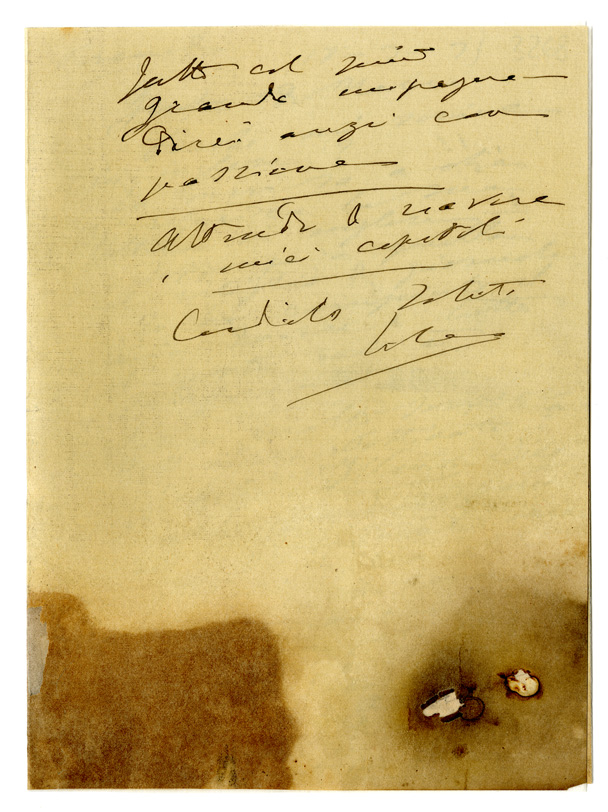 fatto col mio
grande impegno
direi anzi con
passione
Attendo
i miei capitoli
Cordiali saluti